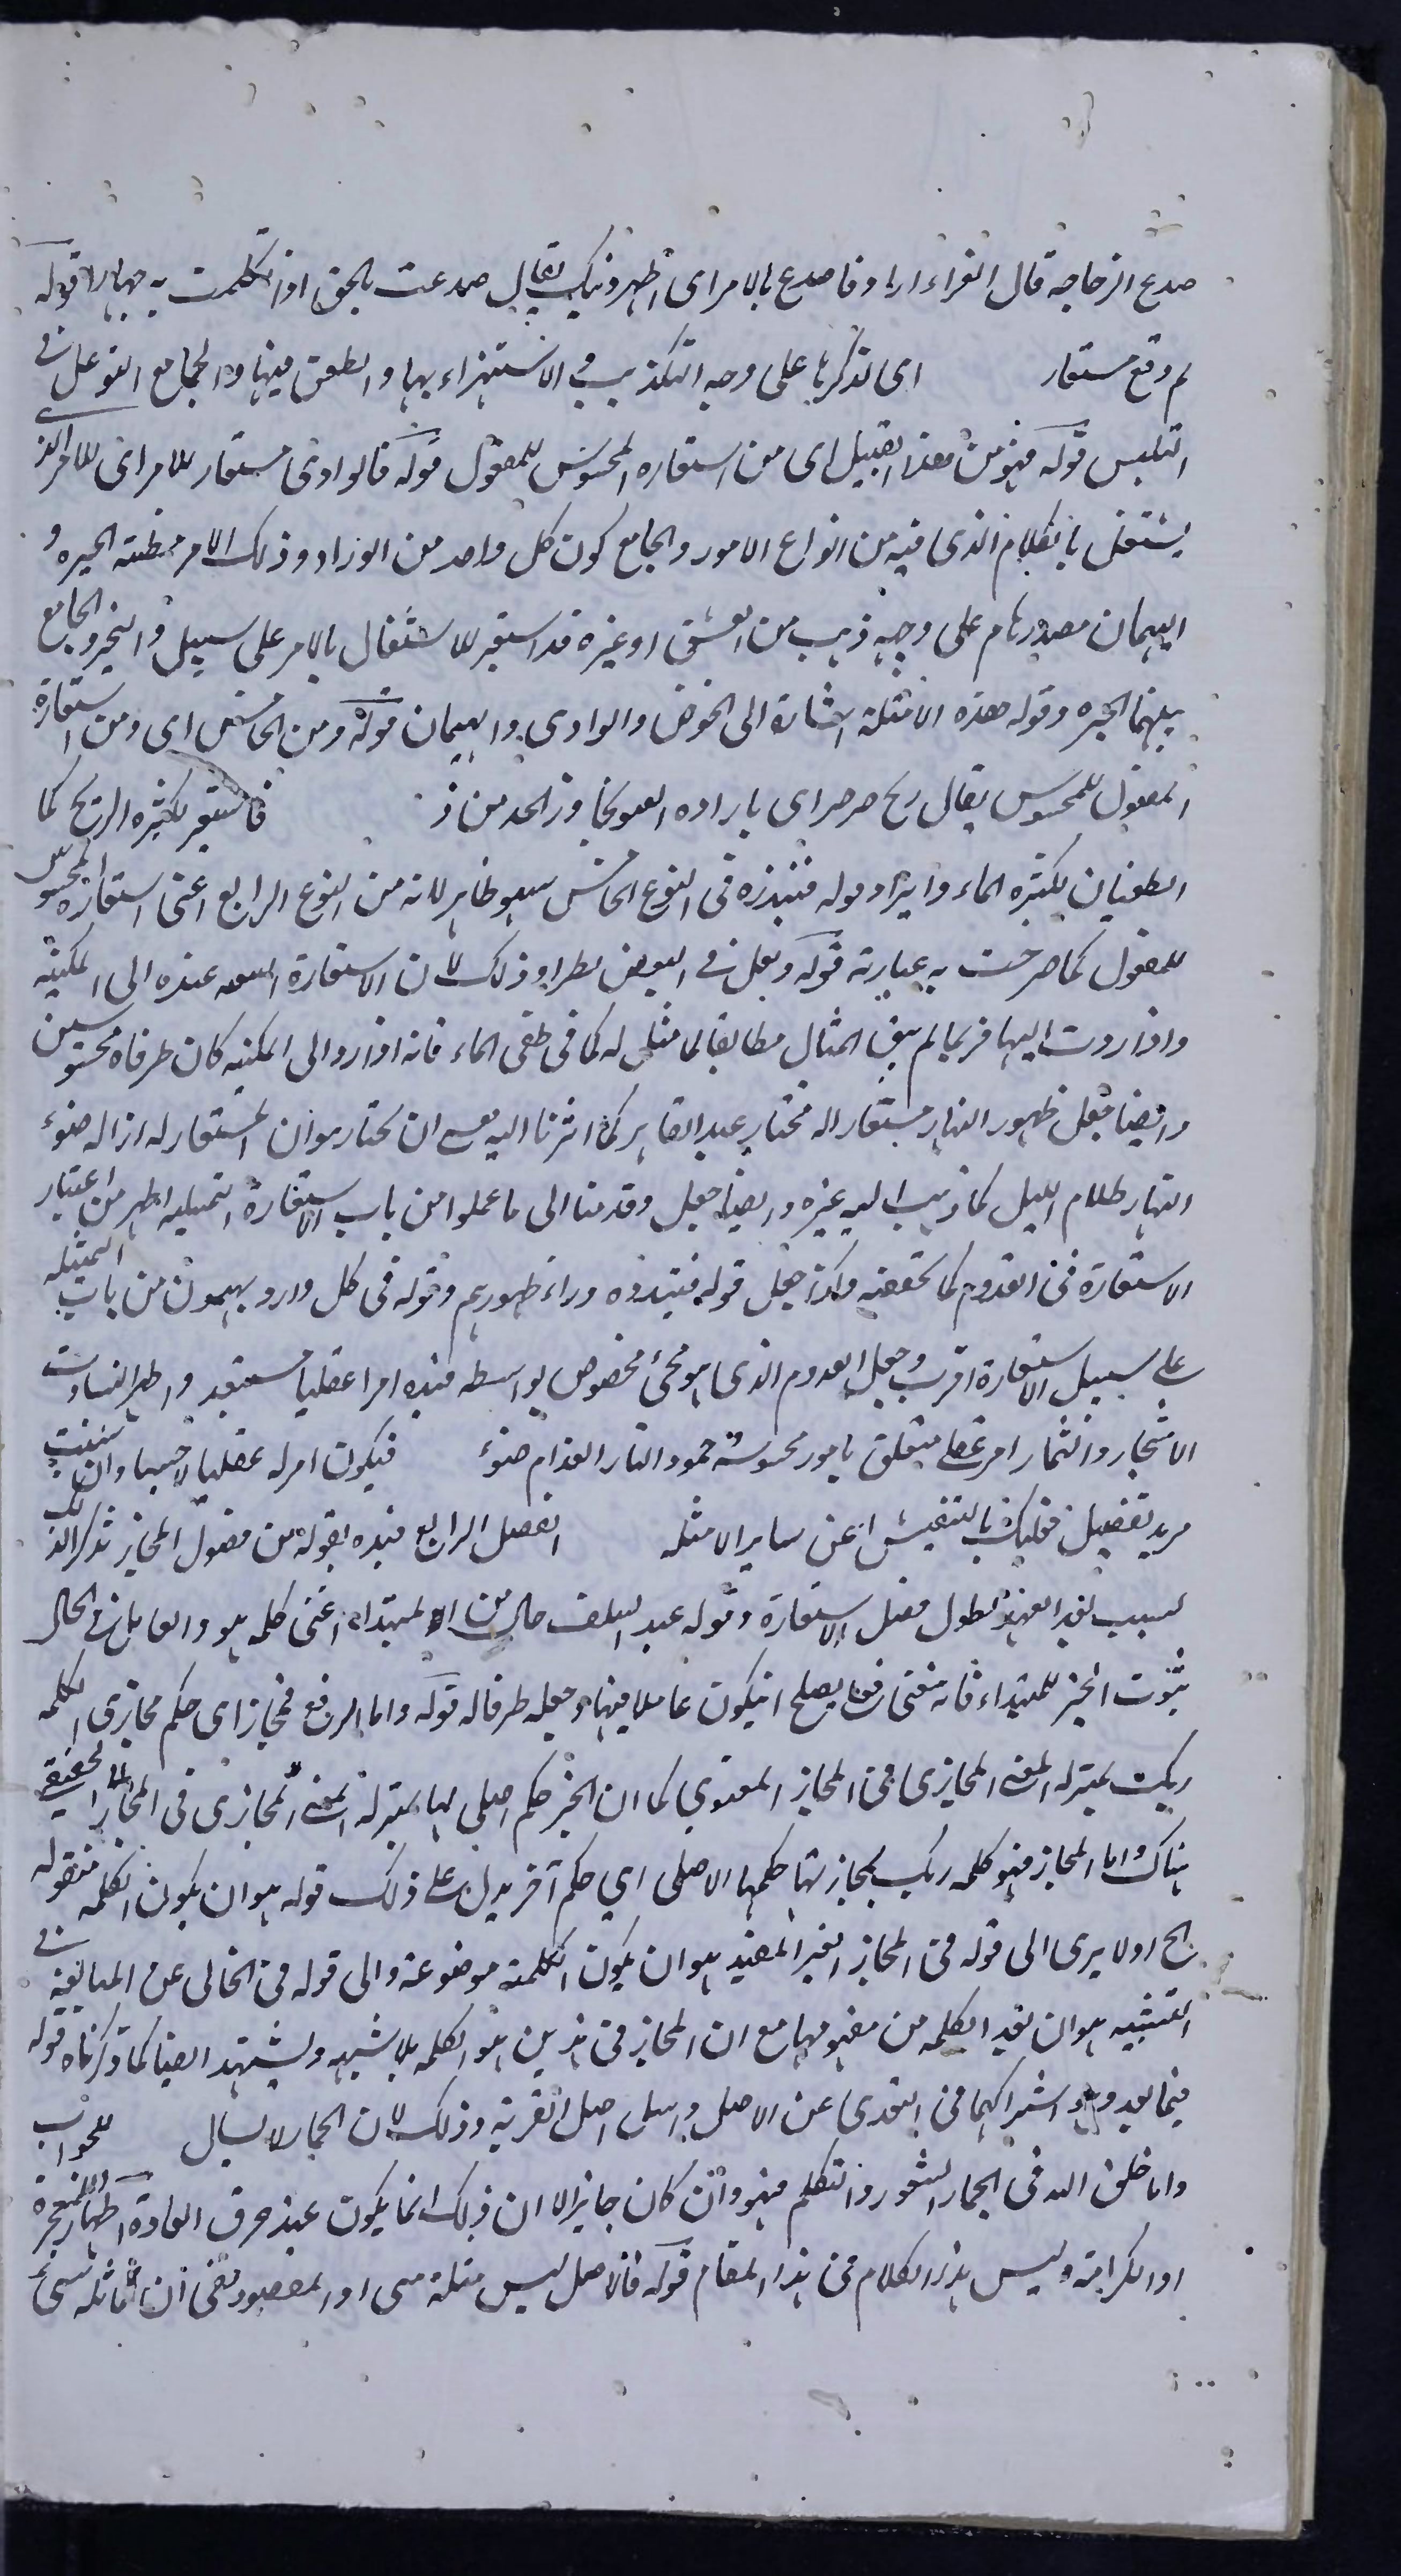 صدع الزجاجه قال الفراء اراد فاصدع بالامر اى اظهر دينك يقال صدعت بالحق اذا تكلمت به جهارا قوله
ثم وقع مستعار اى تذكرها على وجه التكذيب و الاستهزاء بها و الطعن فيها و الجامع التوغل فى
التلبس قوله فهو من هذا القبيل اى من استعاره المحسوس للمعقول قوله فالوادى مستعار للامر اى للامر الذى
يشتغل بالكلام الذى فيه من انواع الامور و الجامع كون كل واحد من الوادى و ذلك الامر مظنته الحيره و
الهيمان مصدر هام على وجهه ذهب من العشق او غيره قد استعير للاشتغال بالامر على سبيل و التحير و الجامع
بينهما الحيره و قوله هذه الامثلة اشارة الى الخوض و الوادى و الهيمان قوله و من الخامس اى و من استعارة
المعقول للمحسوس يقال ريح صرصر اى بارده العتو تجاوز الحد من ذ فاستعير لكثيره الريح كما
الطغيان لكثره الماء و ايراد قوله فنبذوه فى النوع الخامس سهو ظاهر لانه من النوع الرابع اعنى استعارة المحسوس
للمعقول كما صرحت به عبارته قوله و لعل فى البعض نظرا و ذلك لان الاستعارة عنده الى المكنيه
و اذا ردت اليها فربما لم يبق المثال مطابقا لما مثل له كما فى طغى الماء فانه اذا رد الى المكنيه كان طرفاه محسوسين
و ايضا جعل ظهور النهار مستعارا له مختار عبد القاهر كما اشرنا اليه مع ان مختار هو ان المستعار له ازاله ضوء
النهار ظلام الليل كما ذهب اليه غيره و ايضا جعل و قدمنا الى ما عملوا من باب الاستعارة التمثيليه اظهر من اعتبار
الاستعارة فى القدوم كما تحققته و كذا جعل قوله فنبذوه وراء ظهورهم و قوله فى كل واد يهيمون من باب التمثيله
على سبيل الاستعارة اقرب و جعل القدوم الذى هو مجئ مخصوص بواسطه قيده امرا عقليا مستبعد و اظهر النبات
الاشجار و الثمار امر عقلى متعلق بامور محسوسة خمود النار انعدام ضوء فيكون امر له عقليا لا حسيا و ان شئت
مزيد تفصيل فعليك بالتفتيش عن ساير الامثله الفصل الرابع قيده بقوله من فصول المجاز تذكر لذلك
لسبب بعد العهد لطول فصل الاستعارة و قوله عند السلف حال من المبتداء اعنى كلمه هو و العامل فى الحال
ثبوت الخبر للمبتداء فانه معنى يصلح ان يكون عاملا فيها و جعله طرفا له قوله و اما الرفع فمجاز اى حكم مجازى لكلمه
ربك بمنزله المعنى المجازى فى المجاز المعنوي كما ان الجر حكم اصلى لها بمنزله المعنى المجازى فى المجاز الحقيقى
هناك و اما المجاز فهو كلمه ربك لمجازتها حكمها الاصلى اي حكم آخر يدل على ذلك قوله هو ان يكون الكلمه منقوله
الخ او لا يرى الى قوله فى المجاز الغير المفيد هو ان يكون الكلمة موضوعة و الى قوله فى الخالى عن المبالغه فى
التشبيه هو ان تعد الكلمه من مفهومها مع ان المجاز فى هذين هو الكلمه بلا شبهه و يشهد ايضا كما ذكرناه قوله
فيما بعد و هو اشتراكهما فى التعدى عن الاصل و اسئل اصل القرية و ذلك لان الجمار لا يسال للجواب
و اما خلق الله فى الجمار الشعور و التكلم فهو و ان كان جايزا الا ان ذلك انما يكون عند خرق العادة اظهارا للمعجزة
او الكرامة و ليس هذا الكلام فى هذا المقام قوله فالاصل ليس مثله شى اذ المقصود نفى ان يماثله شئ